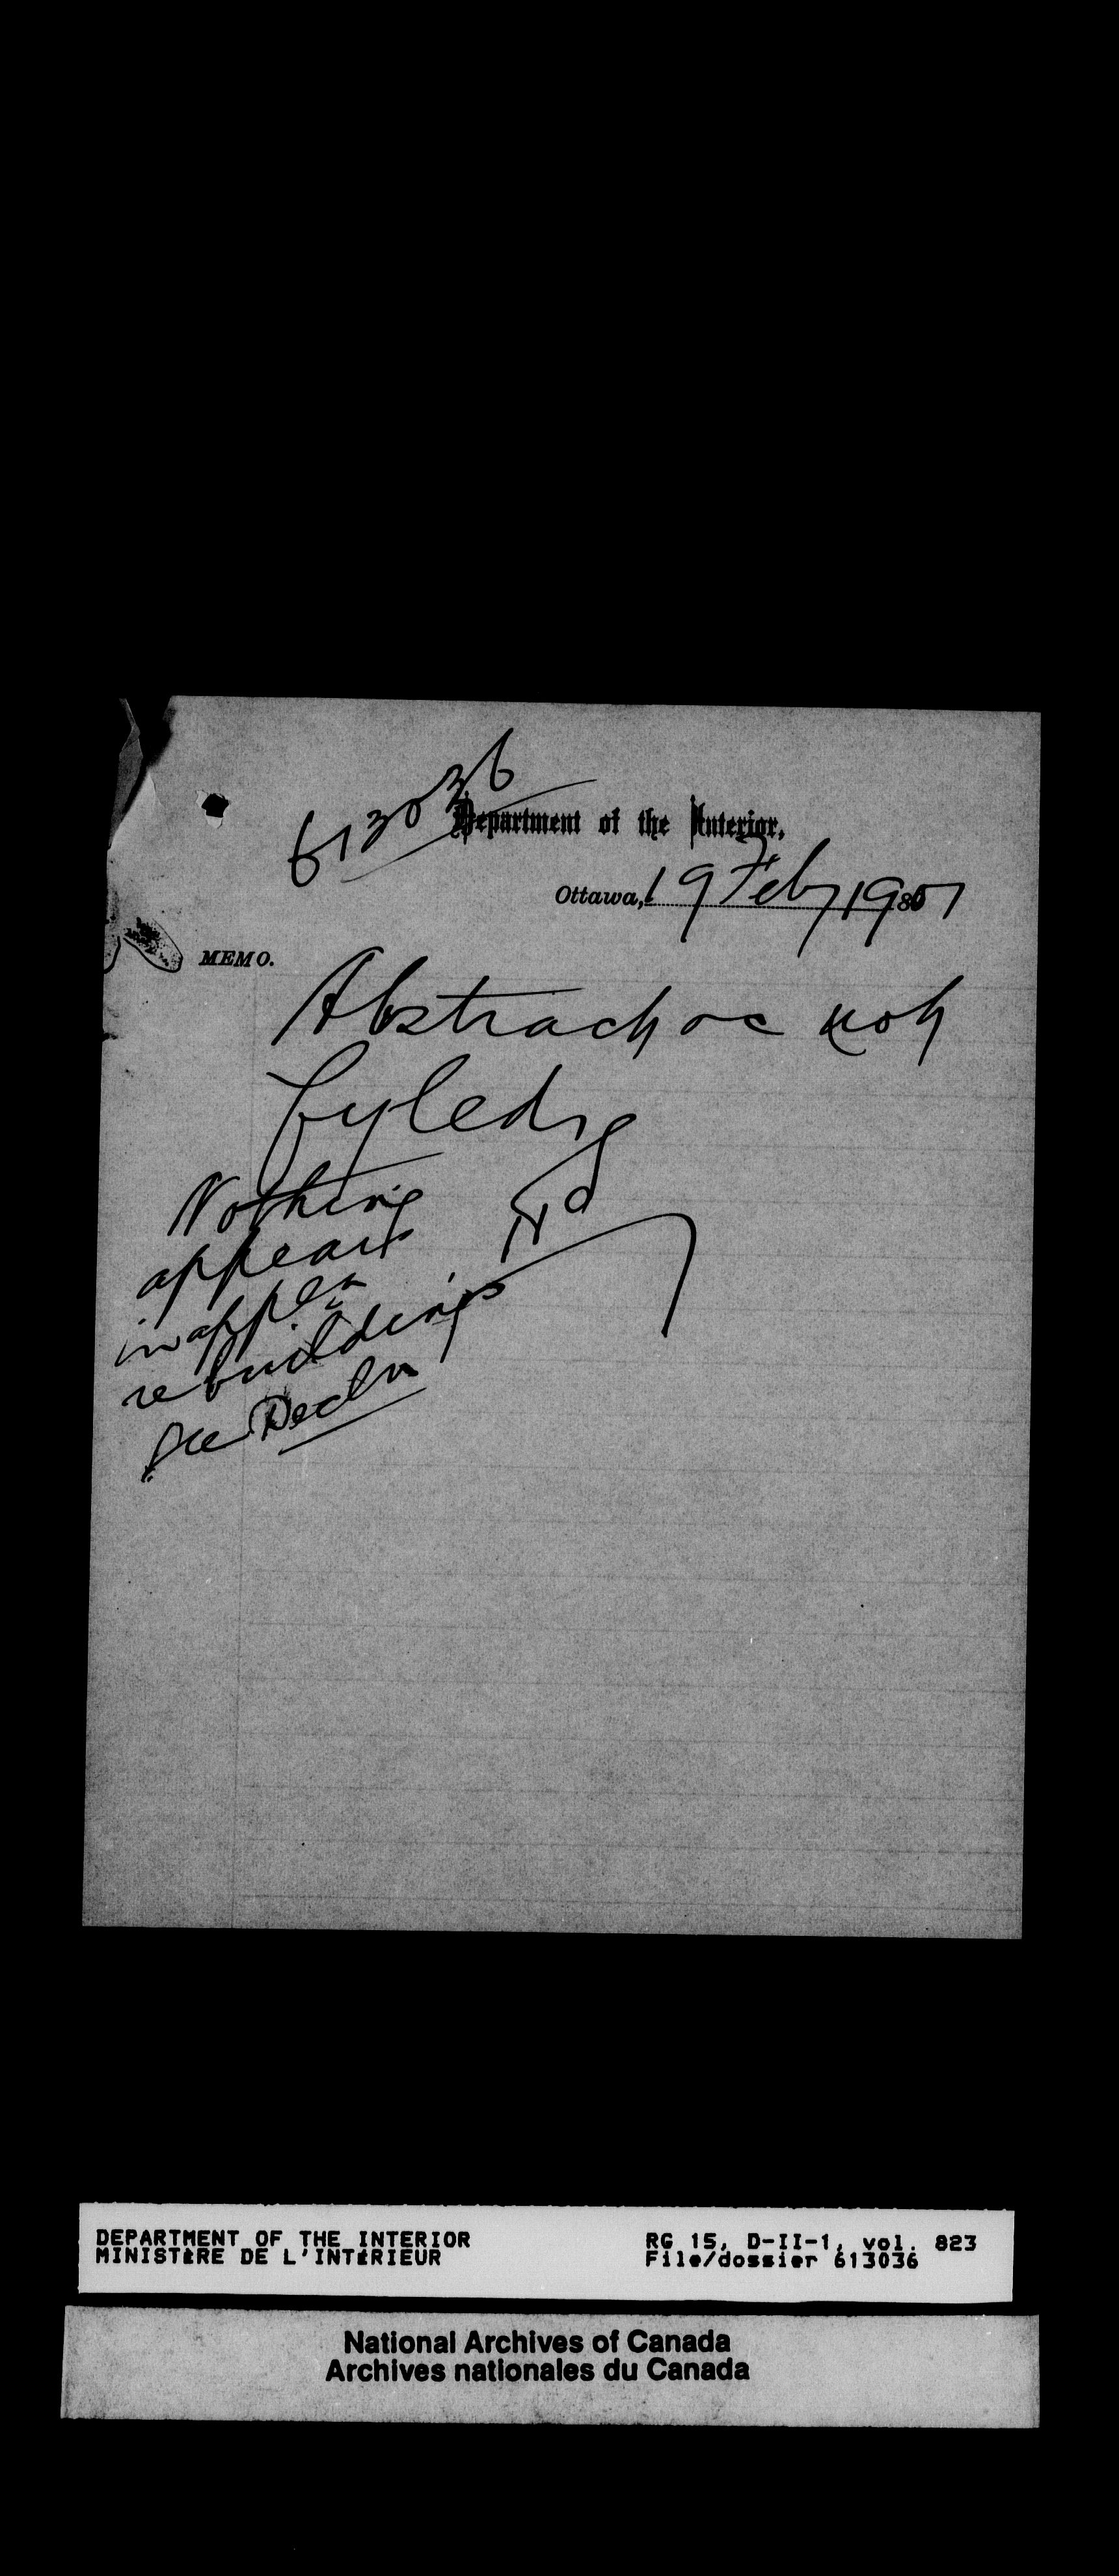 613036
Department of the Interior,
Ottawa, 19 Feby 1901
MEMO.
Abstract not
fyled
Nothing
appears
in appln
re buildings
See Decln
DEPARTMENT OF THE INTERIOR
MINISTÈRE DE L'INTÉRIEUR
RG 15, D-II-1, vol. 823
File/dossier 613036
National Archives of Canada
Archives nationales du Canada